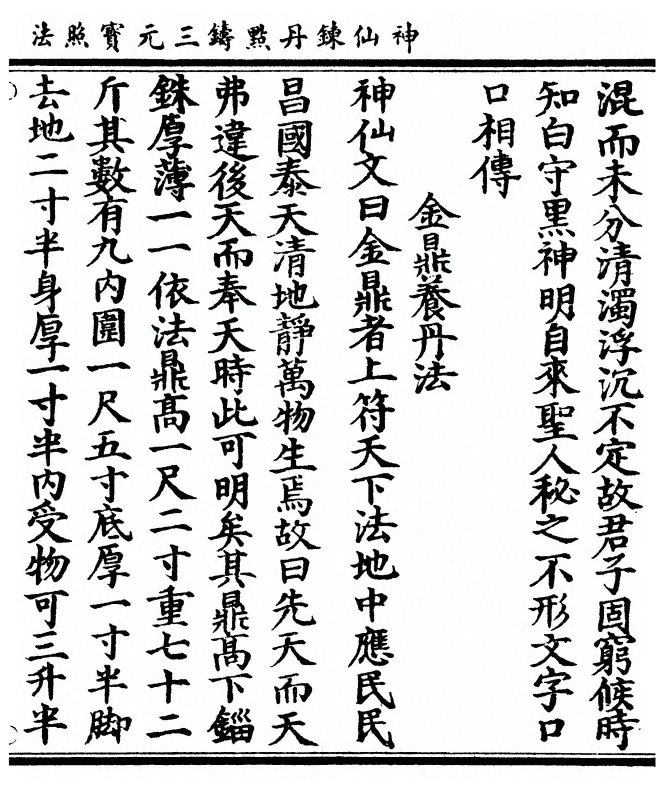 神仙鍊丹點鑄三元寶照法
混而未分清濁浮沉不定故君子固窮候時
知白守黑神明自來聖人秘之不形文字口
口相傳
金鼎養丹法
神仙文曰金鼎者上符天下法地中應民民
昌國泰天清地靜萬物生焉故曰先天而天
弗違後天而奉天時此可明矣其鼎高下錙
銖厚薄一一依法鼎高一尺二寸重七十二
斤其數有九內圍一尺五寸底厚一寸半脚
去地二寸半身厚一寸半內受物可三升半